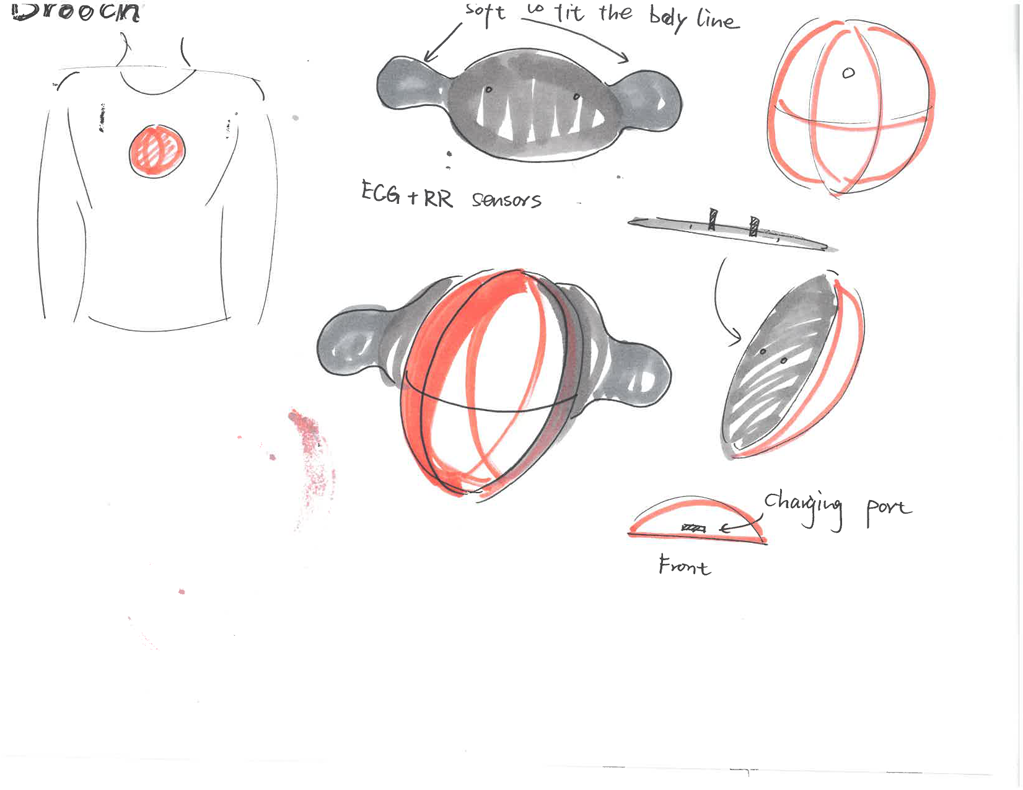 Brooch
soft to fit the body line
ECG + RR sensors
Charging port
Front